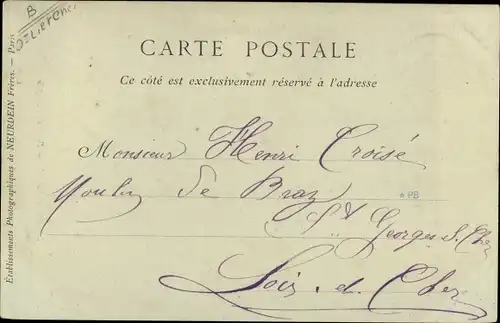 B
CARTE POSTALE
Ce côté est exclusivement réservé à l'adresse
Monsieur Henri Croisé
Moulin de Bray
*PB
St Georges s. Cher
Loir-et-Cher
Établissements Photographiques de NEURDEIN Frères. — Paris